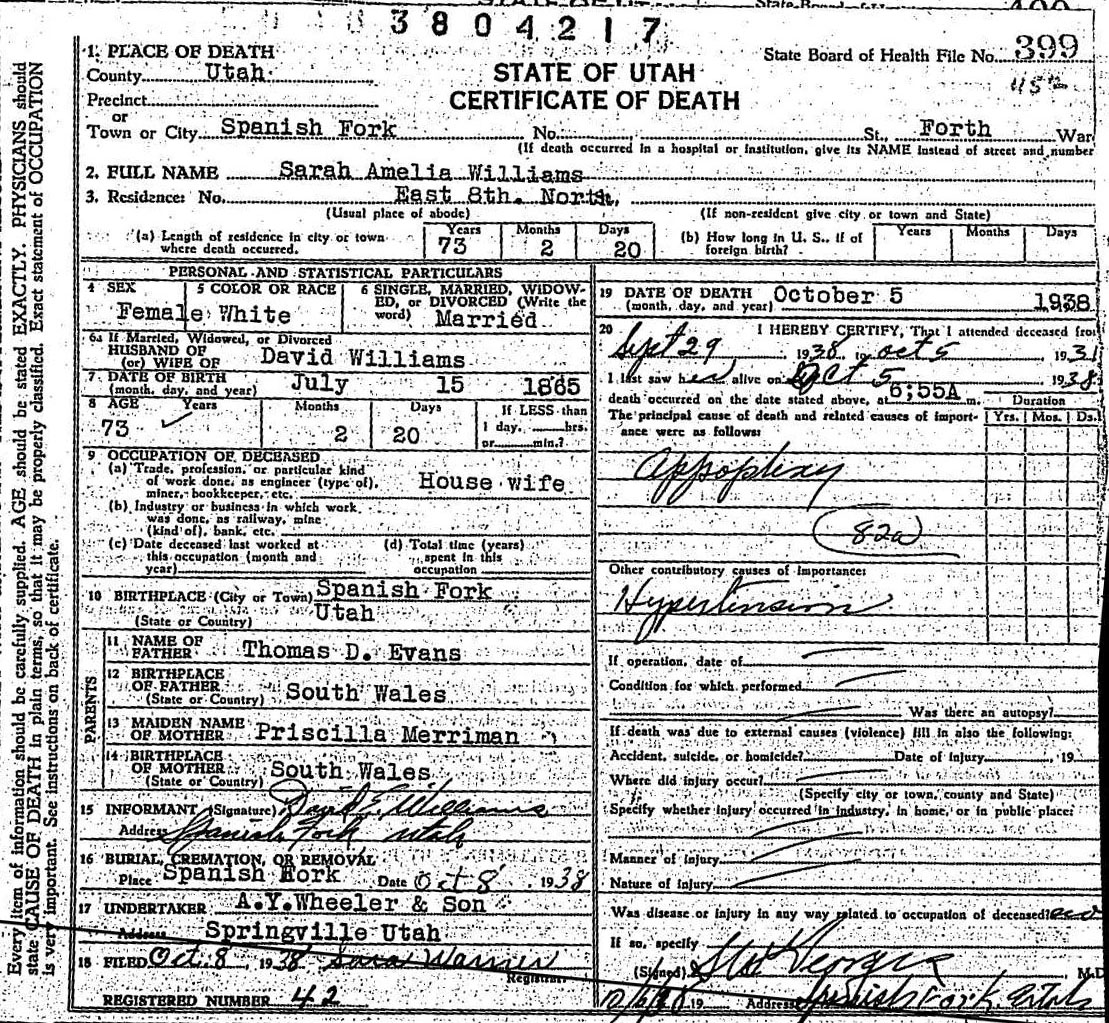 3804217
State Board of Health File No. 399
STATE OF UTAH
CERTIFICATE OF DEATH
1. PLACE OF DEATH
County Utah
Precinct
or
Town or City Spanish Fork No. St., Forth War
(If death occurred in a hospital or institution, give its NAME instead of street and number
2. FULL NAME Sarah Amelia Williams
3. Residence: No. East 8th. North,
(Usual place of abode) (If non-resident give city or town and State)
(a) Length of residence in city or town where death occurred. Years 73 Months 2 Days 20
(b) How long in U. S., if of foreign birth? Years Months Days
PERSONAL AND STATISTICAL PARTICULARS
4 SEX Female
5 COLOR OR RACE White
6 SINGLE, MARRIED, WIDOWED, or DIVORCED (Write the word) Married
6a If Married, Widowed, or Divorced
HUSBAND OF
(or) WIFE OF David Williams
7 DATE OF BIRTH (month, day, and year) July 15 1865
8 AGE Years 73 Months 2 Days 20 If LESS than 1 day, hrs. or min.?
9 OCCUPATION OF DECEASED
(a) Trade, profession, or particular kind of work done, as engineer (type of), miner, bookkeeper, etc. House wife
(b) Industry or business in which work was done, as railway, mine (kind of), bank, etc.
(c) Date deceased last worked at this occupation (month and year)
(d) Total time (years) spent in this occupation
10 BIRTHPLACE (City or Town) Spanish Fork
(State or Country) Utah
PARENTS
11 NAME OF FATHER Thomas D. Evans
12 BIRTHPLACE OF FATHER (State or Country) South Wales
13 MAIDEN NAME OF MOTHER Priscilla Merriman
14 BIRTHPLACE OF MOTHER (State or Country) South Wales
15 INFORMANT (Signature) David E. Williams
Address Spanish Fork Utah
16 BURIAL, CREMATION, OR REMOVAL
Place Spanish Fork Date Oct 8 1938
17 UNDERTAKER A.Y.Wheeler & Son
Address Springville Utah
18 FILED Oct. 8, 1938 Sara Warner
Registrar.
REGISTERED NUMBER 42
19 DATE OF DEATH (month, day, and year) October 5 1938
20 I HEREBY CERTIFY, That I attended deceased from
Sept 29, 1938 to Oct 5 193
I last saw her alive on Oct 5 1938
death occurred on the date stated above, at 6;55A m.
The principal cause of death and related causes of importance were as follows:
Duration
Yrs. Mos. Ds.
Appoplexy
82a
Other contributory causes of importance:
Hypertension
If operation, date of
Condition for which performed
Was there an autopsy?
If death was due to external causes (violence) fill in also the following:
Accident, suicide, or homicide? Date of injury , 19
Where did injury occur?
(Specify city or town, county and State)
Specify whether injury occurred in industry, in home, or in public place:
Manner of injury
Nature of injury
Was disease or injury in any way related to occupation of deceased? no
If so, specify
(Signed) M.D
19 Address Spanish Fork, Utah
Every item of information should be carefully supplied. AGE should be stated EXACTLY. PHYSICIANS should
state CAUSE OF DEATH in plain terms, so that it may be properly classified. Exact statement of OCCUPATION
is very important. See instructions on back of certificate.